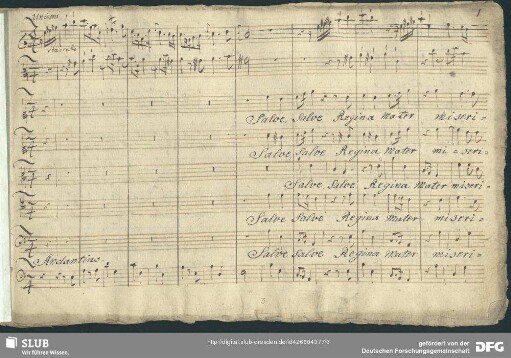 Unison
1
Salve Salve Regina Mater miseri=
Salve Salve Regina Mater mi=seri=
Salve Salve Regina Mater miseri=
Salve Salve Regina Mater miseri=
Andantino
Salve Salve Regina Mater miseri=
SLUB
Wir führen Wissen.
gefördert von der
Deutschen Forschungsgemeinschaft
DFG